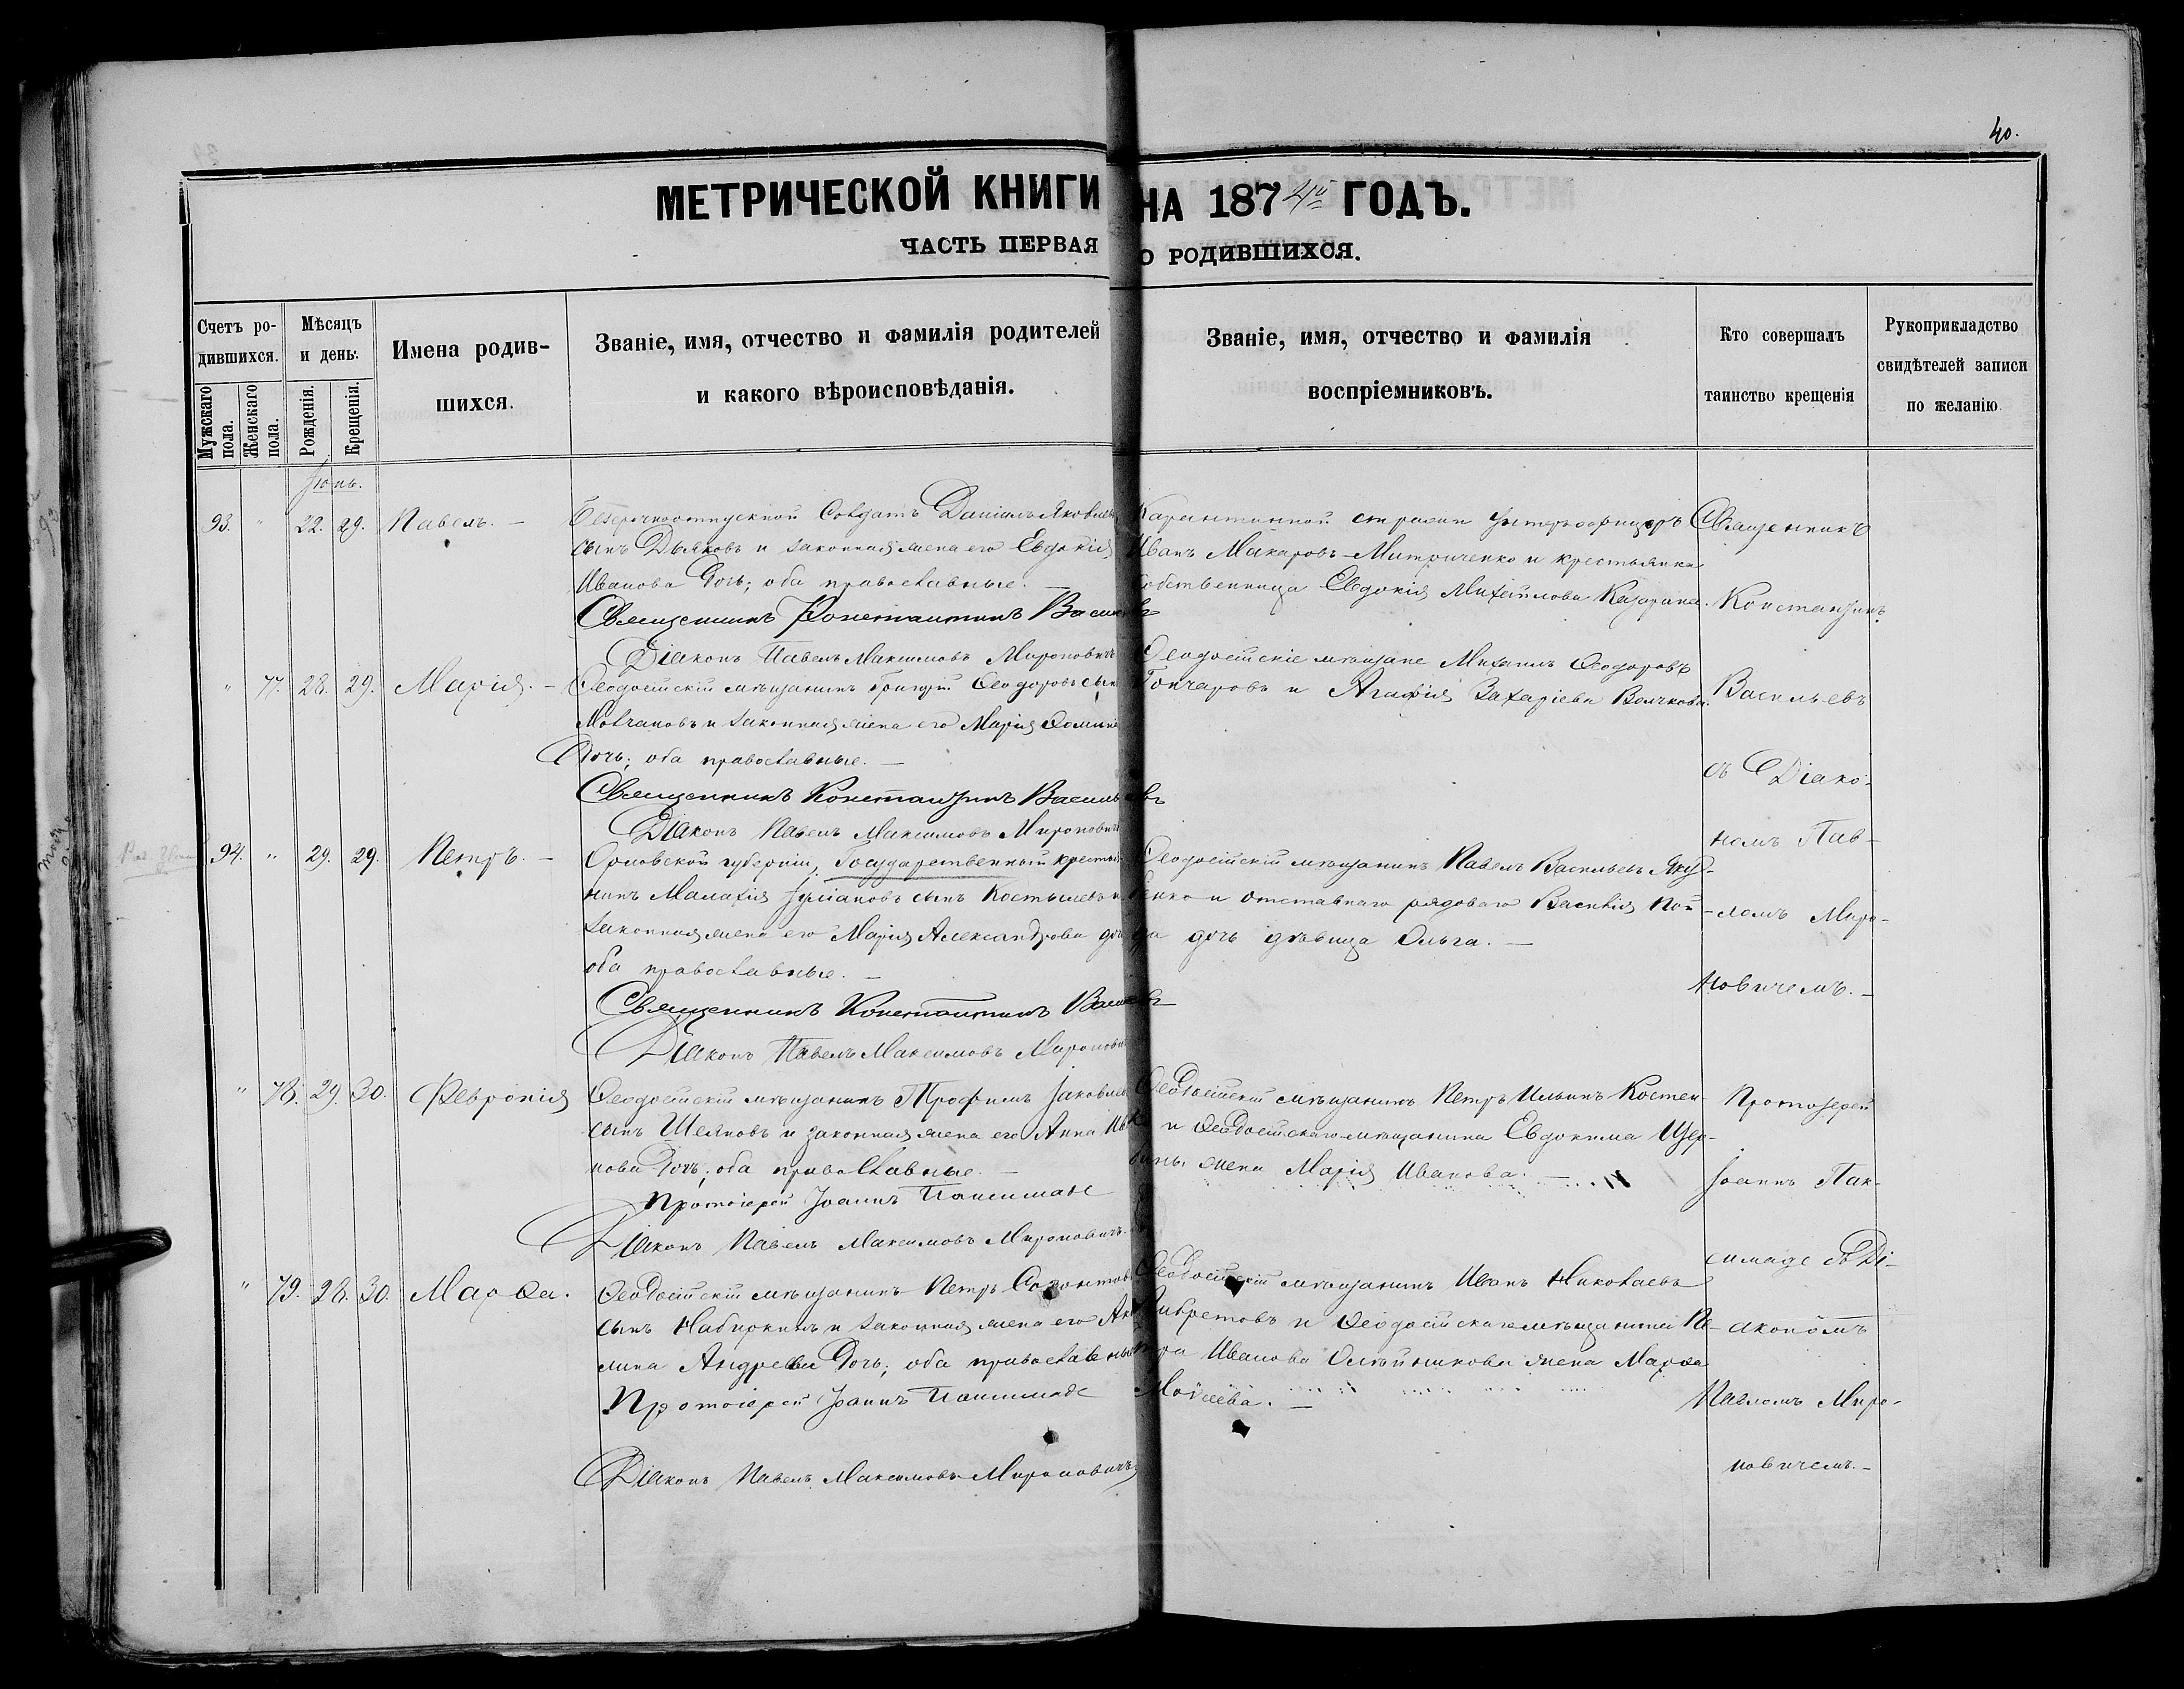 40.
МЕТРИЧЕСКОЙ КНИГИ НА 1874й ГОДЪ.
ЧАСТЬ ПЕРВАЯ О РОДИВШИХСЯ.
Счетъ родившихся.
Мужскаго пола.
Женскаго пола.
Мѣсяцъ и день.
Рожденія.
Крещенія.
Имена родив-
шихся.
Званіе, имя, отчество и фамилія родителей
и какого вѣроисповѣданія.
Званіе, имя, отчество и фамилія
воспріемниковъ.
Кто совершалъ
таинство крещенія
Рукоприкладство
свидѣтелей записи
по желанію
Іюнь.
93. " 22. 29. Павелъ. —
Безсрочноотпускной Солдатъ Даніилъ Яковлевъ
сынъ Дьяковъ и законная жена его Евдокія
Иванова дочь; оба православные. —
Священникъ Константинъ Васильевъ
Діаконъ Павелъ Максимовъ Мироновичъ
Карантинной стражи Унтеръ-офицеръ
Иванъ Макаровъ Митриченко и крестьянка
собственница Евдокія Михайлова
" 77. 28. 29. Марія. —
Ѳеодосійскій мѣщанинъ Григорій Ѳеодоровъ сынъ
Молчановъ и законная жена его Марія Ѳомина
Дочь; оба православные. —
Священникъ Константинъ Васильевъ
Діаконъ Павелъ Максимовъ Мироновичъ
Ѳеодосійскіе мѣщане Михаилъ Ѳеодоровъ
Гончаровъ и Агафія Захаріева Волчкова.
94. " 29. 29. Петръ. —
Орловской губерніи, Государственный крестья-
нинъ Малахія сынъ Костылевъ и
законная жена его Марія Александрова дочь
оба православные. —
Священникъ Константинъ Васильевъ
Діаконъ Павелъ Максимовъ Мироновичъ
Ѳеодосійскій мѣщанинъ Павелъ Васильевъ Яку-
бенко и отставнаго рядоваго Василія
дочь дѣвица Ольга. —
Священникъ
Константинъ
Васильевъ
съ Діако-
номъ Пав-
ломъ Миро-
новичемъ. —
" 78. 29. 30. Февронія
Ѳеодосійскій мѣщанинъ Трофимъ Іаковлевъ
сынъ Шеяновъ и законная жена его Анна Ива-
нова дочь; оба православные. —
Протоіерей Іоаннъ Паксимаде
Діаконъ Павелъ Максимовъ Мироновичъ.
Ѳеодосійскій мѣщанинъ Петръ Ильинъ Костен-
ко и Ѳеодосійскаго мѣщанина Евдокима Щер-
бины жена Марія Иванова. —
" 79. 28. 30. Марѳа.
Ѳеодосійскій мѣщанинъ Петръ
сынъ Набиркинъ и законная жена его Аки-
лина Андреева дочь; оба православные
Протоіерей Іоаннъ Паксимаде
Діаконъ Павелъ Максимовъ Мироновичъ
Ѳеодосійскій мѣщанинъ Иванъ Николаевъ
и Ѳеодосійскаго мѣщанина Пе-
тра Иванова Олейникова жена Марѳа
Моѵсеева. —
Протоіерей
Іоаннъ Пак-
симаде съ Ді-
акономъ
Павломъ Миро-
новичемъ. —